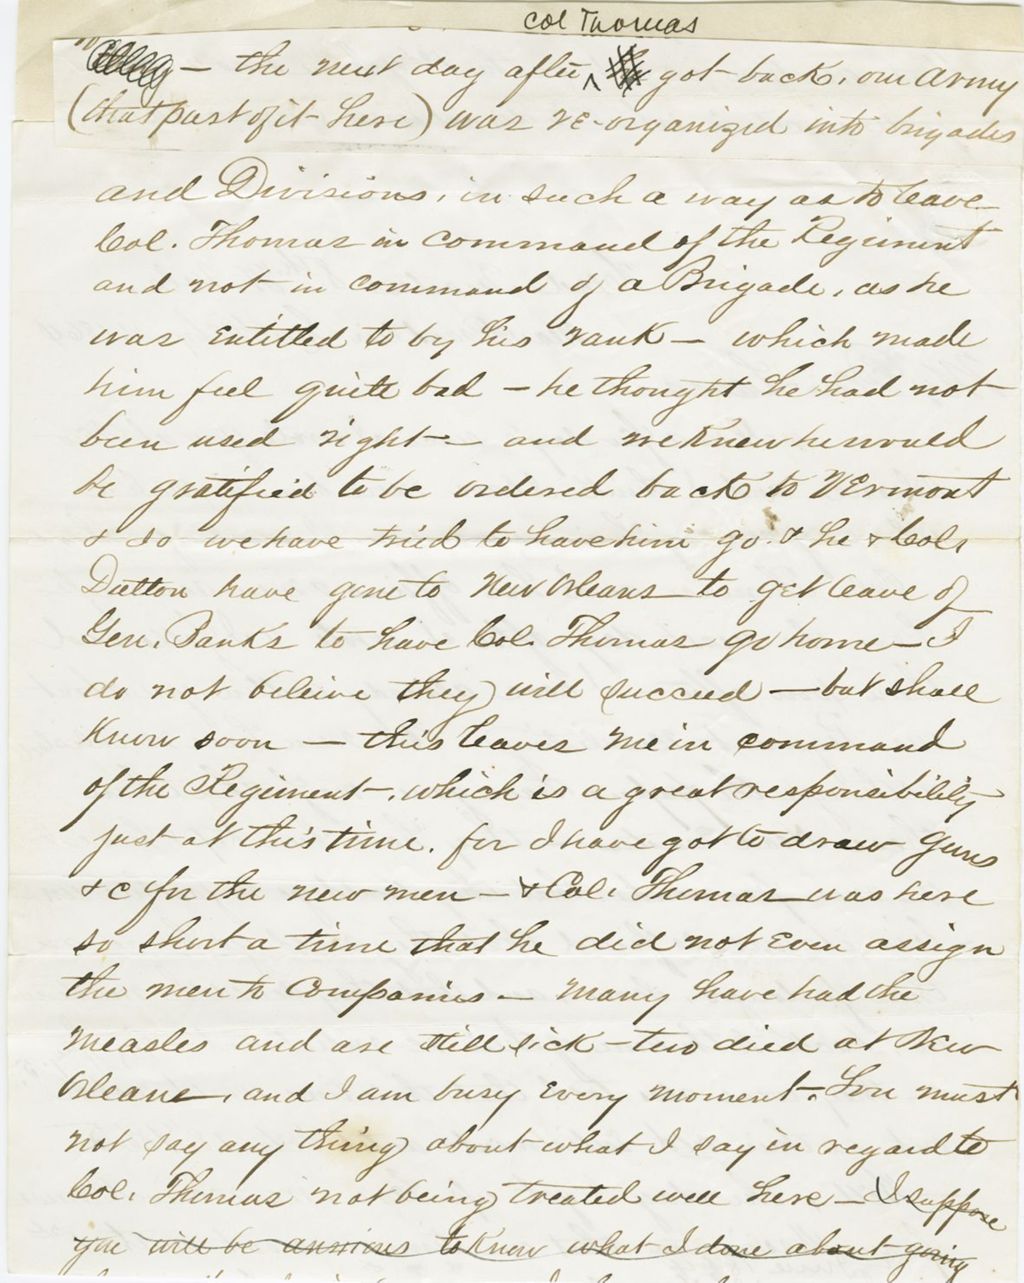 Col Thomas
— the next day after ^ got back, our Army
(that part of it here) was re-organized into brigades
and Divisions, in such a way as to leave
Col. Thomas in command of the Regiment
and not in command of a Brigade, as he
was entitled to by his rank — which made
him feel quite bad — he thought he had not
been used right — and we knew he would
be gratified to be ordered back to Vermont
& so we have tried to have him go & he & Col.
Dutton have gone to New Orleans to get leave of
Gen. Banks to have Col. Thomas go home — I
do not beleive they will succeed — but shall
know soon — this leaves me in command
of the Regiment, which is a great responsibility
just at this time, for I have got to draw guns
&c for the new men — & Col. Thomas was here
so short a time that he did not even assign
the men to Companies — Many have had the
measles and are still sick — two died at New
Orleans, and I am busy every moment. You must
not say any thing about what I say in regard to
Col. Thomas not being treated well here — I suppose
you will be anxious to know what I done about going